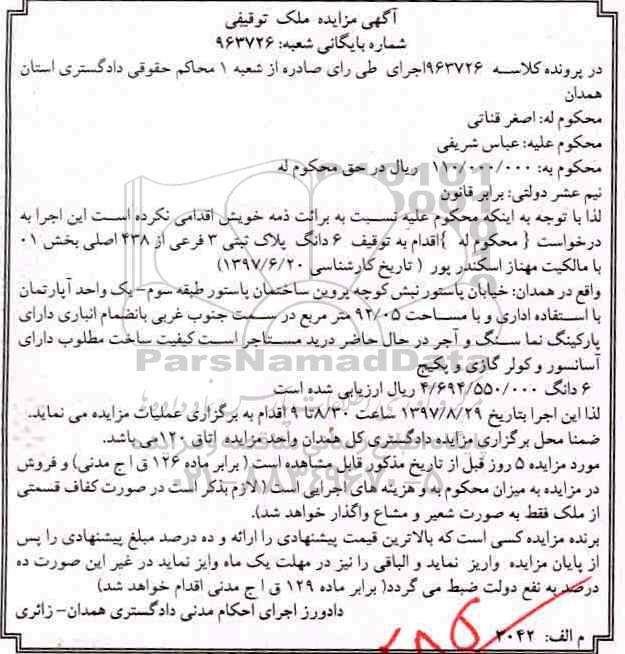 آگهی مزایده ملک توقیفی
شماره بایگانی شعبه: ۹۶۳۷۲۶
در پرونده کلاسه ۹۶۳۷۲۶اجرای طی رای صادره از شعبه ۱ محاکم حقوقی دادگستری استان
همدان
محکوم له: اصغر قناتی
محکوم علیه: عباس شریفی
محکوم به: ۱۱۰/۰۰۰/۰۰۰ ریال در حق محکوم له
نیم عشر دولتی: برابر قانون
لذا با توجه به اینکه محکوم علیه نسبت به برائت ذمه خویش اقدامی نکرده است این اجرا به
درخواست { محکوم له }اقدام به توقیف ۶ دانگ پلاک ثبتی ۳ فرعی از ۴۳۸ اصلی بخش ۰۱
با مالکیت مهناز اسکندر پور ( تاریخ کارشناسی ۱۳۹۷/۶/۲۰)
واقع در همدان: خیابان پاستور نبش کوچه پروین ساختمان پاستور طبقه سوم- یک واحد آپارتمان
با استفاده اداری و با مساحت ۹۲/۰۵ متر مربع در سمت جنوب غربی بانضمام انباری دارای
پارکینگ نما سنگ و آجر در حال حاضر درید مستاجر است کیفیت ساخت مطلوب دارای
آسانسور و کولر گازی و پکیج
۶ دانگ ۴/۶۹۴/۵۵۰/۰۰۰ ریال ارزیابی شده است
لذا این اجرا بتاریخ ۱۳۹۷/۸/۲۹ ساعت ۸/۳۰تا ۹ اقدام به برگزاری عملیات مزایده می نماید.
ضمنا محل برگزاری مزایده دادگستری کل همدان واحد مزایده اتاق ۱۲۰می باشد.
مورد مزایده ۵ روز قبل از تاریخ مذکور قابل مشاهده است ( برابر ماده ۱۲۶ ق ا ج مدنی) و فروش
در مزایده به میزان محکوم به و هزینه های اجرایی است ( لازم بذکر است در صورت کفاف قسمتی
از ملک فقط به صورت شعیر و مشاع واگذار خواهد شد).
برنده مزایده کسی است که بالاترین قیمت پیشنهادی را ارائه و ده درصد مبلغ پیشنهادی را پس
از پایان مزایده واریز نماید و الباقی را نیز در مهلت یک ماه وایز نماید در غیر این صورت ده
درصد به نفع دولت ضبط می گردد( برابر ماده ۱۲۹ ق ا ج مدنی اقدام خواهد شد)
دادورز اجرای احکام مدنی دادگستری همدان- زائری
م الف: ۳۰۴۲
ParsNamadData
۰۲۱-۸۸۳۴۹۶۷۰-۵